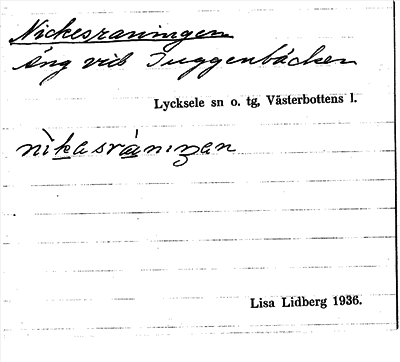 Nickesraningen
Äng vid Tuggenbäcken
Lycksele sn o. tg, Västerbottens l.
nìkasránıŋen
Lisa Lidberg 1936.